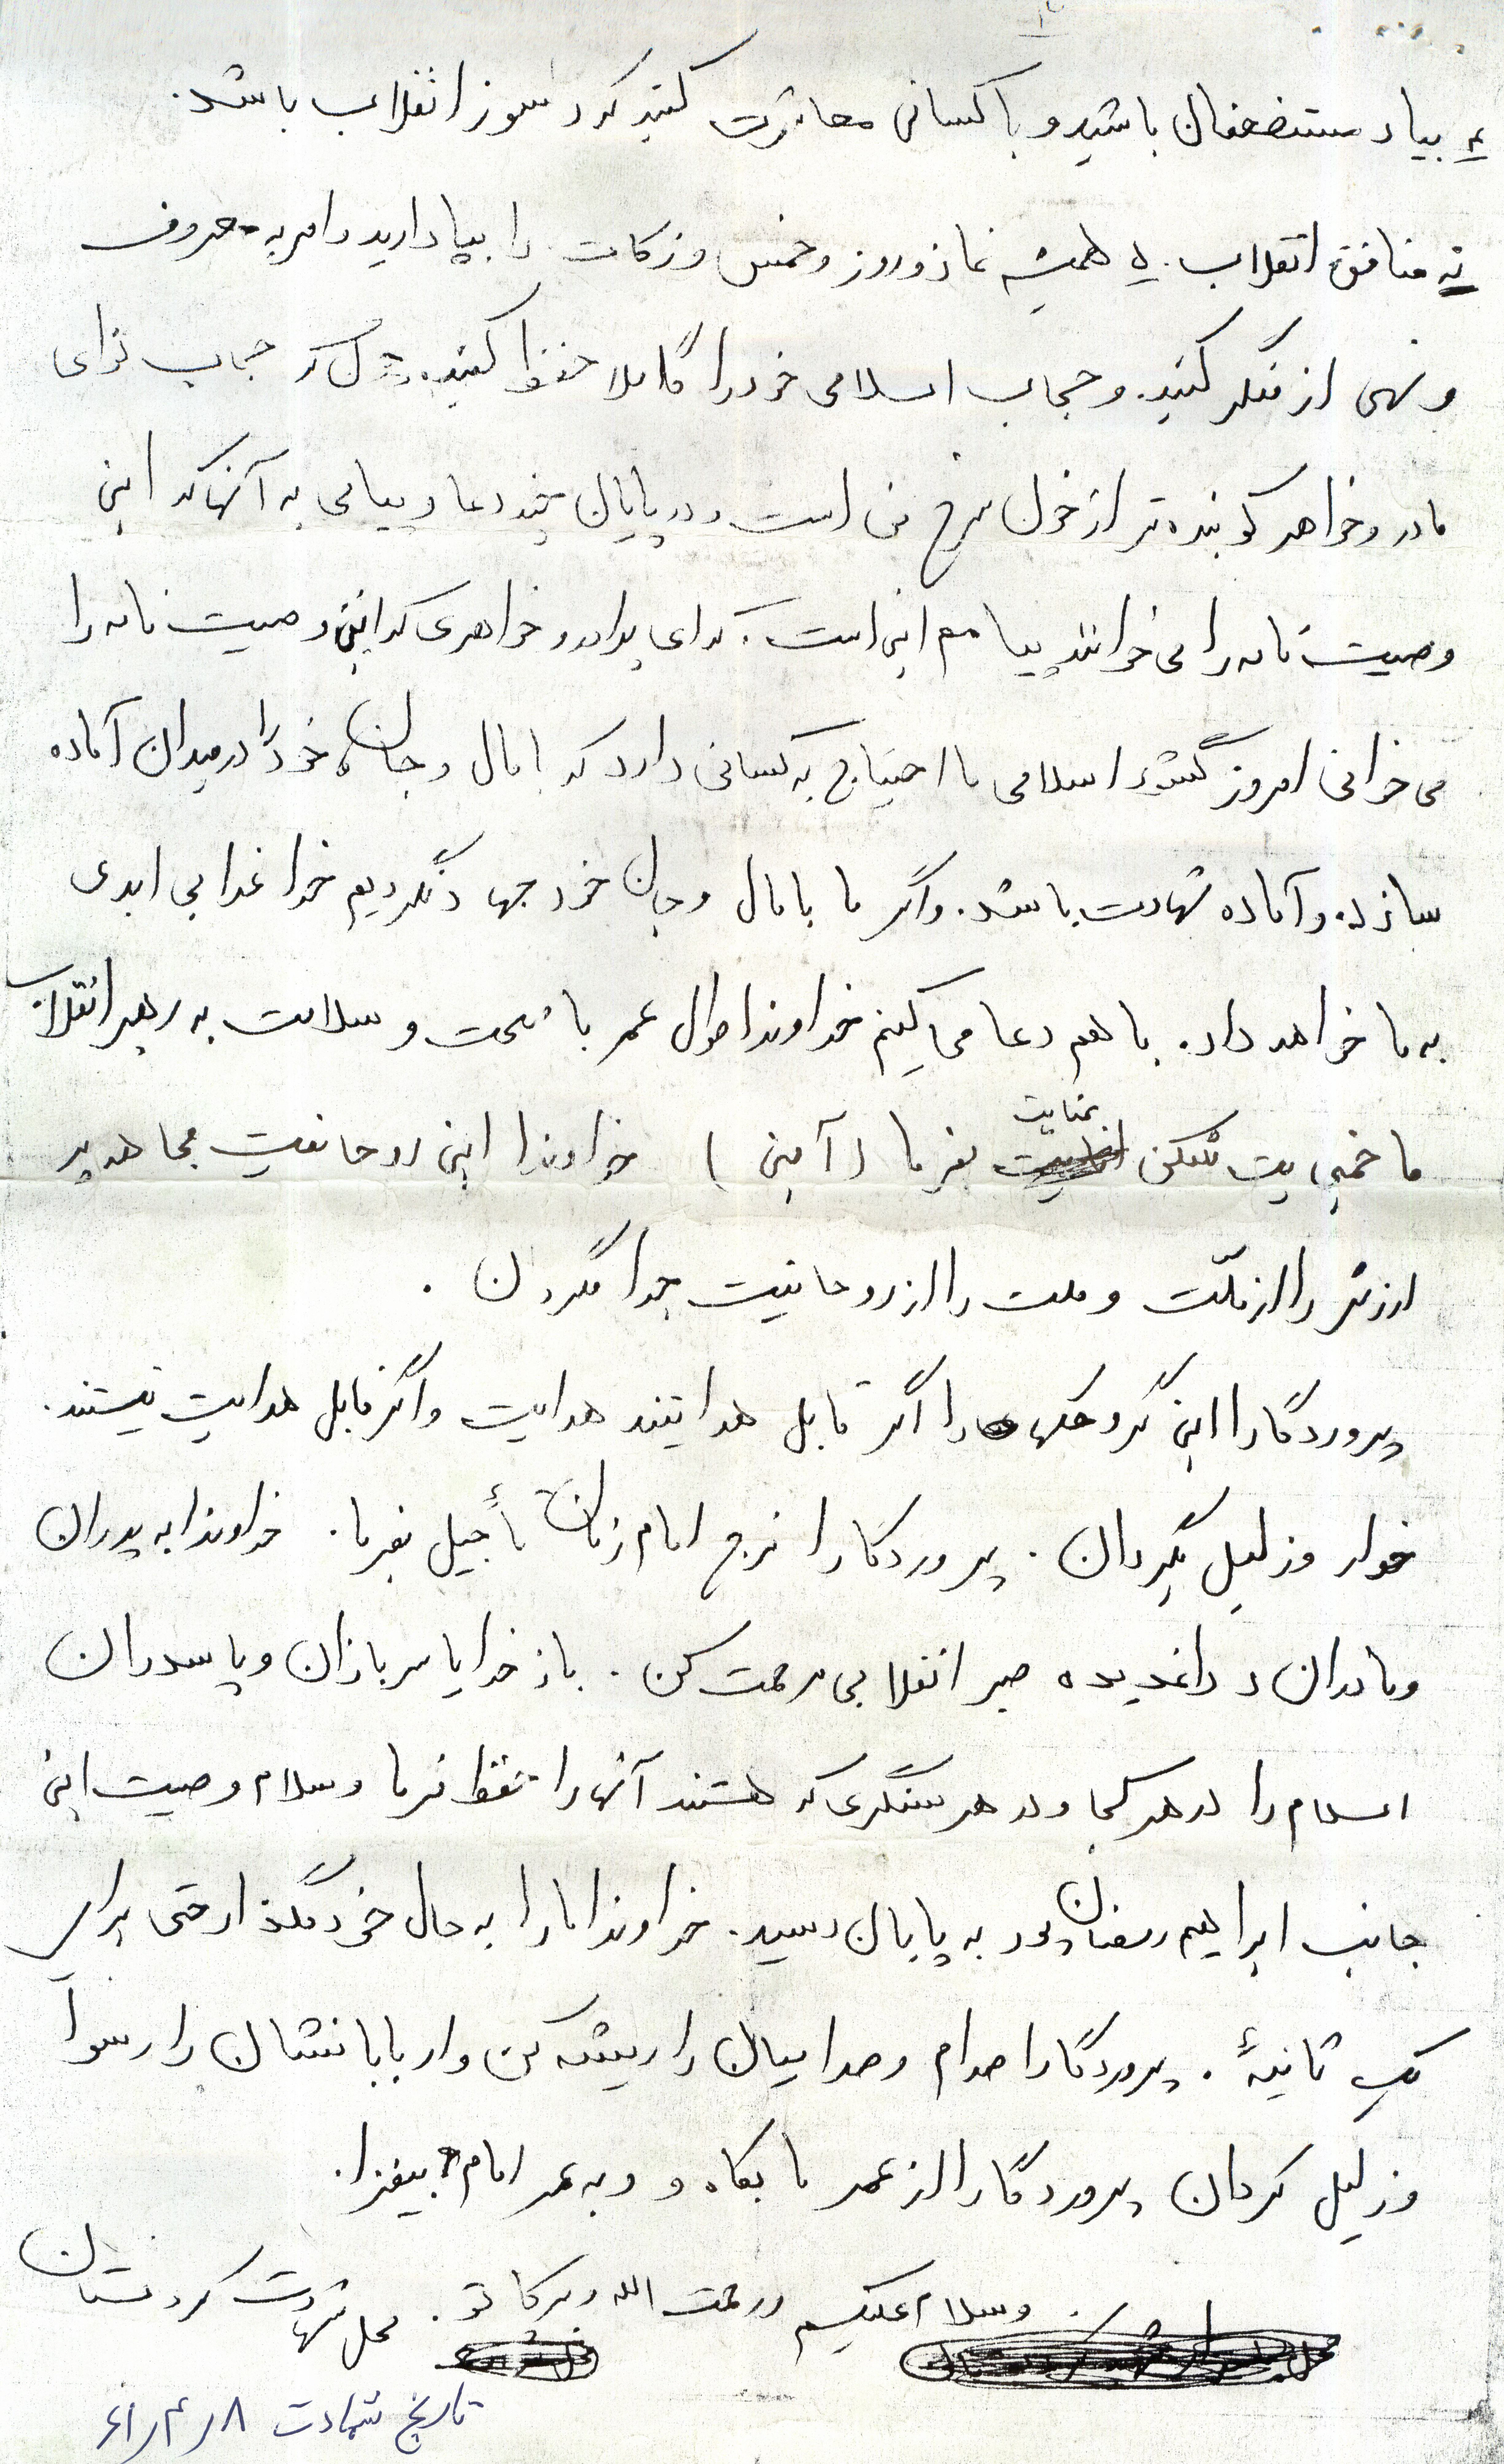 بیاد مستضعفان باشید و با کسانی معاشرت کنید که دلسوز انقلاب باشد.
نه منافق انقلاب. همیشه نماز و روز و خمس و زکات را بپا دارید و امر به معروف
و نهی از منکر کنید. و حجاب اسلامی خود را کاملا حفظ کنید. حجاب تو ای
مادر و خواهر کوبنده تر از خون سرخ من است و در پایان چند دعا و پیامی به آنها که این
وصیت نامه را می خوانند پیامم این است. که ای برادر و خواهری که این وصیت نامه را
می خوانی امروز کشور اسلامی ما احتیاج به کسانی دارد که با مال و جان خود را در میدان آماده
سازد. و آماده شهادت باشد. و اگر ما با مال و جان خود جهاد نکردیم خدا عذابی ابدی
به ما خواهد داد. با هم دعا می کنیم خداوندا طول عمر با صحت و سلامت به رهبر انقلاب
ما خمینی بت شکن عنایت بفرما (آمین) خداوندا این روحانیت مجاهد پر
ارزش را از ملّت و ملت را از روحانیت جدا مگردان.
پروردگارا این گروهکها را اگر قابل هدایتند هدایت و اگر قابل هدایت نیستند.
خوار و زلیل بگردان. پروردگارا فرج امام زمان تأجیل بفرما. خداوندا به پدران
و مادران داغدیده صبر انقلابی مرحمت کن. باز خدایا سربازان و پاسدران
اسلام را در هر کجا و در هر سنگری که هستند آنها را حفظ فرما و سلام وصیت این
جانب ابراهیم رمضان پور به پایان رسید. خداوندا ما را به حال خود مگذار حتی برای
یک ثانیهٔ. پروردگارا صدام و صدامیان را ریشه کن و اربابانشان را رسوا
و زلیل گردان پروردگارا از عمر ما بکاه و و به عمر امام بیفزا.
وسلام علیکم و رحمت الله و برکاتو. محل شهادت کردستان
تاریخ شهادت ۶۱/۴/۸